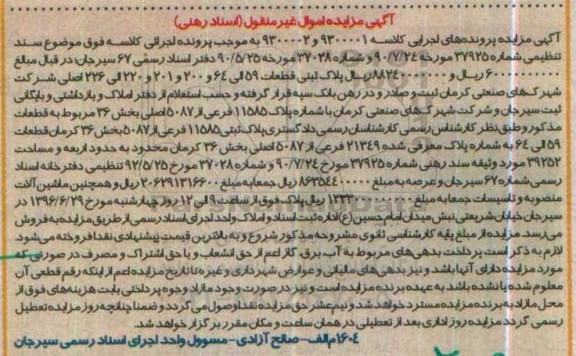 آگهی مزایده اموال غیر منقول (اسناد رهنی)
آگهی مزایده پرونده‌های اجرایی کلاسه ۹۳۰۰۰۰۱ و ۹۳۰۰۰۰۲ به موجب پرونده اجرائی کلاسه فوق موضوع سند
تنظیمی شماره ۳۷۹۲۵ مورخه ۹۰/۷/۲۴ و شماره ۳۷۰۲۸ مورخه ۹۰/۵/۲۵ دفتر اسناد رسمی ۶۷ سیرجان در قبال مبالغ
ریال و ریال پلاک ثبتی قطعات ۵۹ الی ۶۴ و ۲۰۰ و ۲۰۱ و ۲۲۰ الی ۲۲۶ اصلی شرکت
شهرک های صنعتی کرمان ثبت و صادر و در رهن بانک سپه قرار گرفته و حسب استعلام از دفتر املاک و بازداشتی و بایگانی
ثبت سیرجان و شرکت شهرک های صنعتی کرمان با شماره پلاک ۱۱۵۸۵ فرعی از ۵۰۸۷ اصلی بخش ۳۶ مربوط به قطعات
مذکور و طبق نظر کارشناس رسمی کارشناسان رسمی دادگستری پلاک ثبتی ۱۱۵۸۵ فرعی از ۵۰۸۷ اصلی بخش ۳۶ کرمان قطعات
۵۹ الی ۶۴ به شماره پلاک معرفی شده ۲۱۳۴۹ فرعی از ۵۰۸۷ اصلی بخش ۳۶ کرمان محدود به حدود اربعه و مساحت
۳۹۲۵۲ مورد وثیقه سند رهنی شماره ۳۷۹۲۵ مورخ ۹۰/۷/۲۴ و شماره ۳۷۰۲۸ مورخ ۹۲/۵/۲۵ تنظیمی دفترخانه اسناد
رسمی شماره ۶۷ سیرجان و عرصه به مبلغ ریال جمعا به مبلغ ۲۰۶۲۹۱۳۱۶۶۰۰ ریال و همچنین ماشین آلات
منصوبه و تاسیسات جمعا به مبلغ ریال پلاک فوق از ساعت ۹ الی ۱۲ روز چهارشنبه مورخ ۱۳۹۶/۶/۲۹ در
سیرجان خیابان شریعتی نبش میدان امام حسین (ع) اداره ثبت اسناد و املاک واحد اجرای اسناد رسمی از طریق مزایده به فروش
می رسد. مزایده از مبلغ پایه کارشناسی ثانوی مشروحه مذکور شروع و به بالاترین قیمت پیشنهادی نقدا فروخته می شود.
لازم به ذکر است پرداخت بدهی های مربوط به آب، برق، گاز اعم از حق انشعاب و یا حق اشتراک و مصرف در صورتی که
مورد مزایده دارای آنها باشد و نیز بدهی های مالیاتی و عوارض شهرداری و غیره تا تاریخ مزایده اعم از اینکه رقم قطعی آن
معلوم شده یا نشده باشد به عهده برنده مزایده است و نیز در صورت وجود مازاد وجوه پرداختی بابت هزینه های فوق از
محل مازاد به برنده مزایده مسترد خواهد شد و نیم عشر حق مزایده نقدا وصول می گردد و ضمنا چنانچه روز مزایده تعطیل
رسمی گردد مزایده روز اداری بعد از تعطیلی در همان ساعت و مکان مقرر برگزار خواهد شد.
۱۶۰۴ م الف - صالح آزادی - مسوول واحد اجرای اسناد رسمی سیرجان